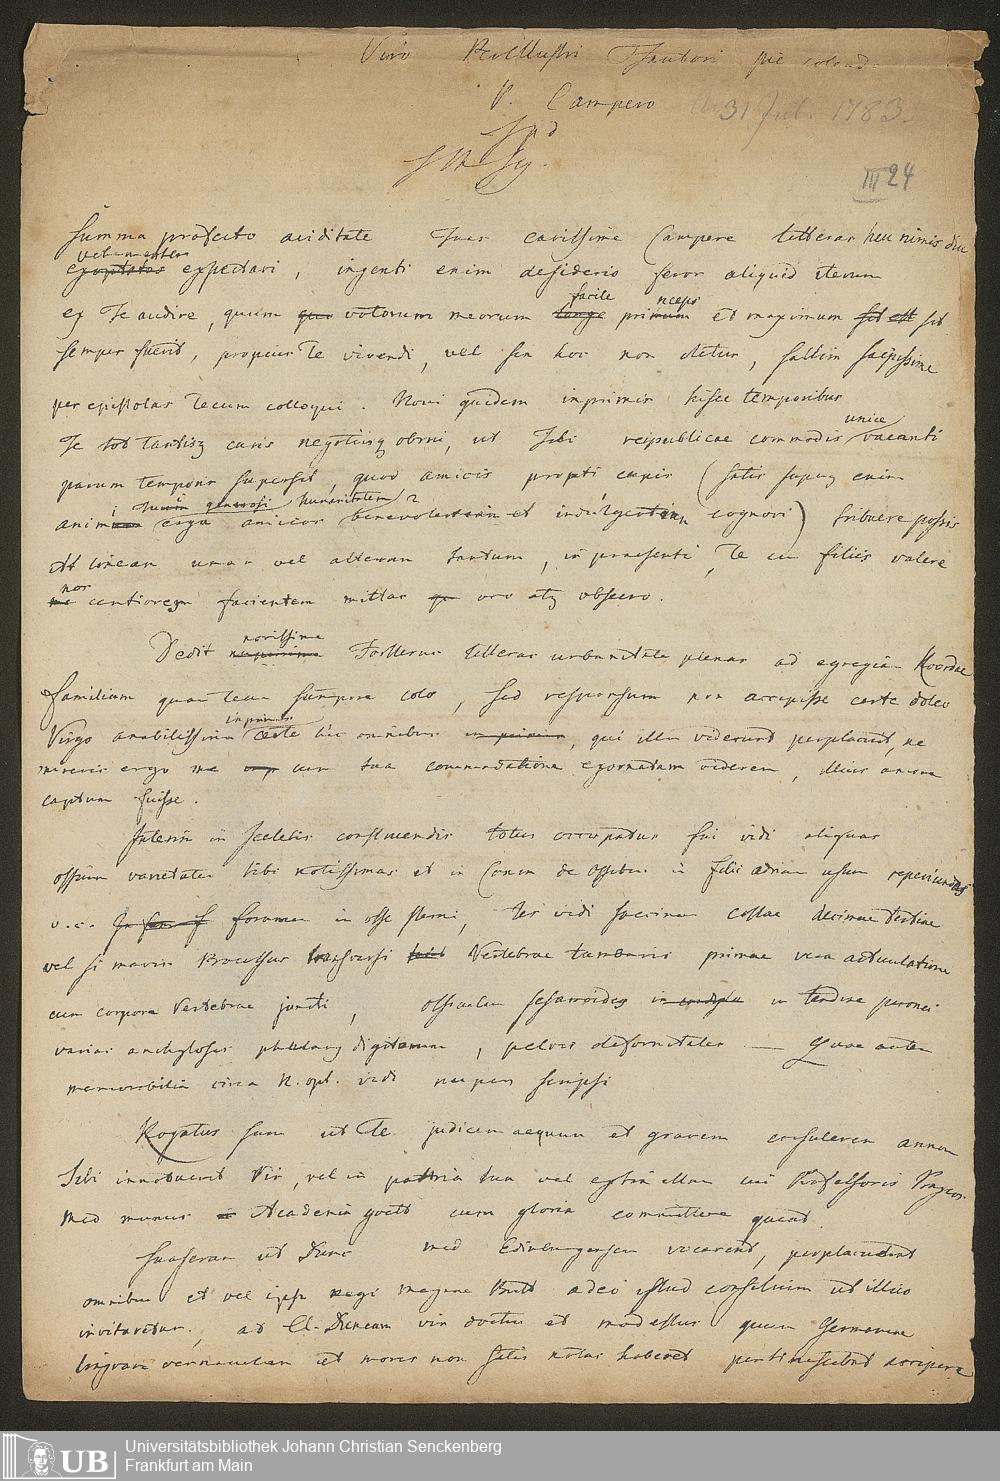 Viro Perillustri Fautori pie colend.
P. Campero 31 Jul. 1783.
III 24
Summa profecto aviditate Tuas carissime Campere litteras heu nimis diu
vehementer
exoptatas expectavi, ingenti enim desiderio feror aliquid iterum
facile nceps
ex Te audire, quum quo votorum meorum longe primum et maximum sit est sit
semper fuerit, propius Te vivendi, vel sin hoc non detur, saltim saepissime
per epistolas Tecum colloqui. Novi quidem inprimis hisce temporibus
unice
Te tot tantisq curis negotiisq obrui, ut Tibi reipublicae commodis vacanti
parum temporis supersit, quod amicis prout cupis (satis superq enim
i generosi humanitatem
animum erga amicos benevolentiam et indulgentiam cognovi) tribuere possis
At lineam unam vel alteram tantum, in praesenti, Te cum filiis valere
nos
me certiorem facientem mittas oro atq obsecro.
novissime
Dedit nuperrime Forsterus litteras urbanitate plenas ad egregiam
familiam quam tecum summopere colo, sed responsum non accepisse certe doleo
inprimis
Virgo amabilissima certe hic omnibus inprimis, qui illam viderunt perplacuit, ne
mireris ergo me cum tua commendatione exornatam viderem, illius amore
captum fuisse.
Interim in sceletis construendis totus occupatus fui vidi aliquas
ossium varietates tibi notissimas et in de Ossibus in filii Adriani usum reperiundas
v. c. foramen in osse sterni, ter vidi faciem costae decimae tertiae
vel si mavis Processus transversi Vertebrae lumbaris primae vera articulatione
cum corpore Vertebrae juncti, ossiculum sesamoideum in in tendine peronei
varias anchyloses phalang digitorum, pelvis deformitates — Quae autem
memorabilia circa N. opt. vidi nuper scripsi
Rogatus sum ut Te judicem aequum et gravem consulerem annon
Tibi innotuerit Vir, vel in patria tua vel extra illam cui Professoris
Med munus in Academia goett cum gloria committere queant.
Suaseram ut Dunc Med Edinburgensem vocarent, perplacuerat
omnibus et vel ipse regi magnae Britt adeo istud consilium ut illico
invitaretur, at Cl. Duncan vir doctus et modestus quum Germaniae
linguam vernaculam et mores non satis notas haberet pertimescebat accipere
Universitätsbibliothek Johann Christian Senckenberg
Frankfurt am Main
UB